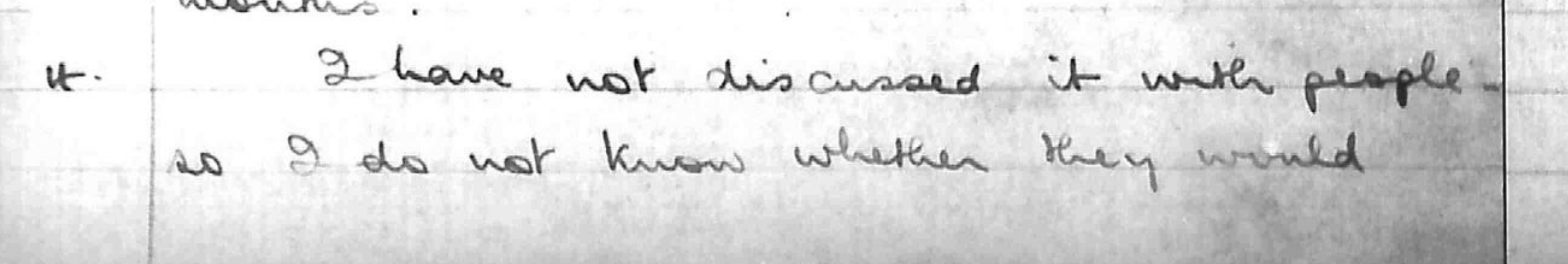 months.
4. I have not discussed it with people -
so I do not know whether they would